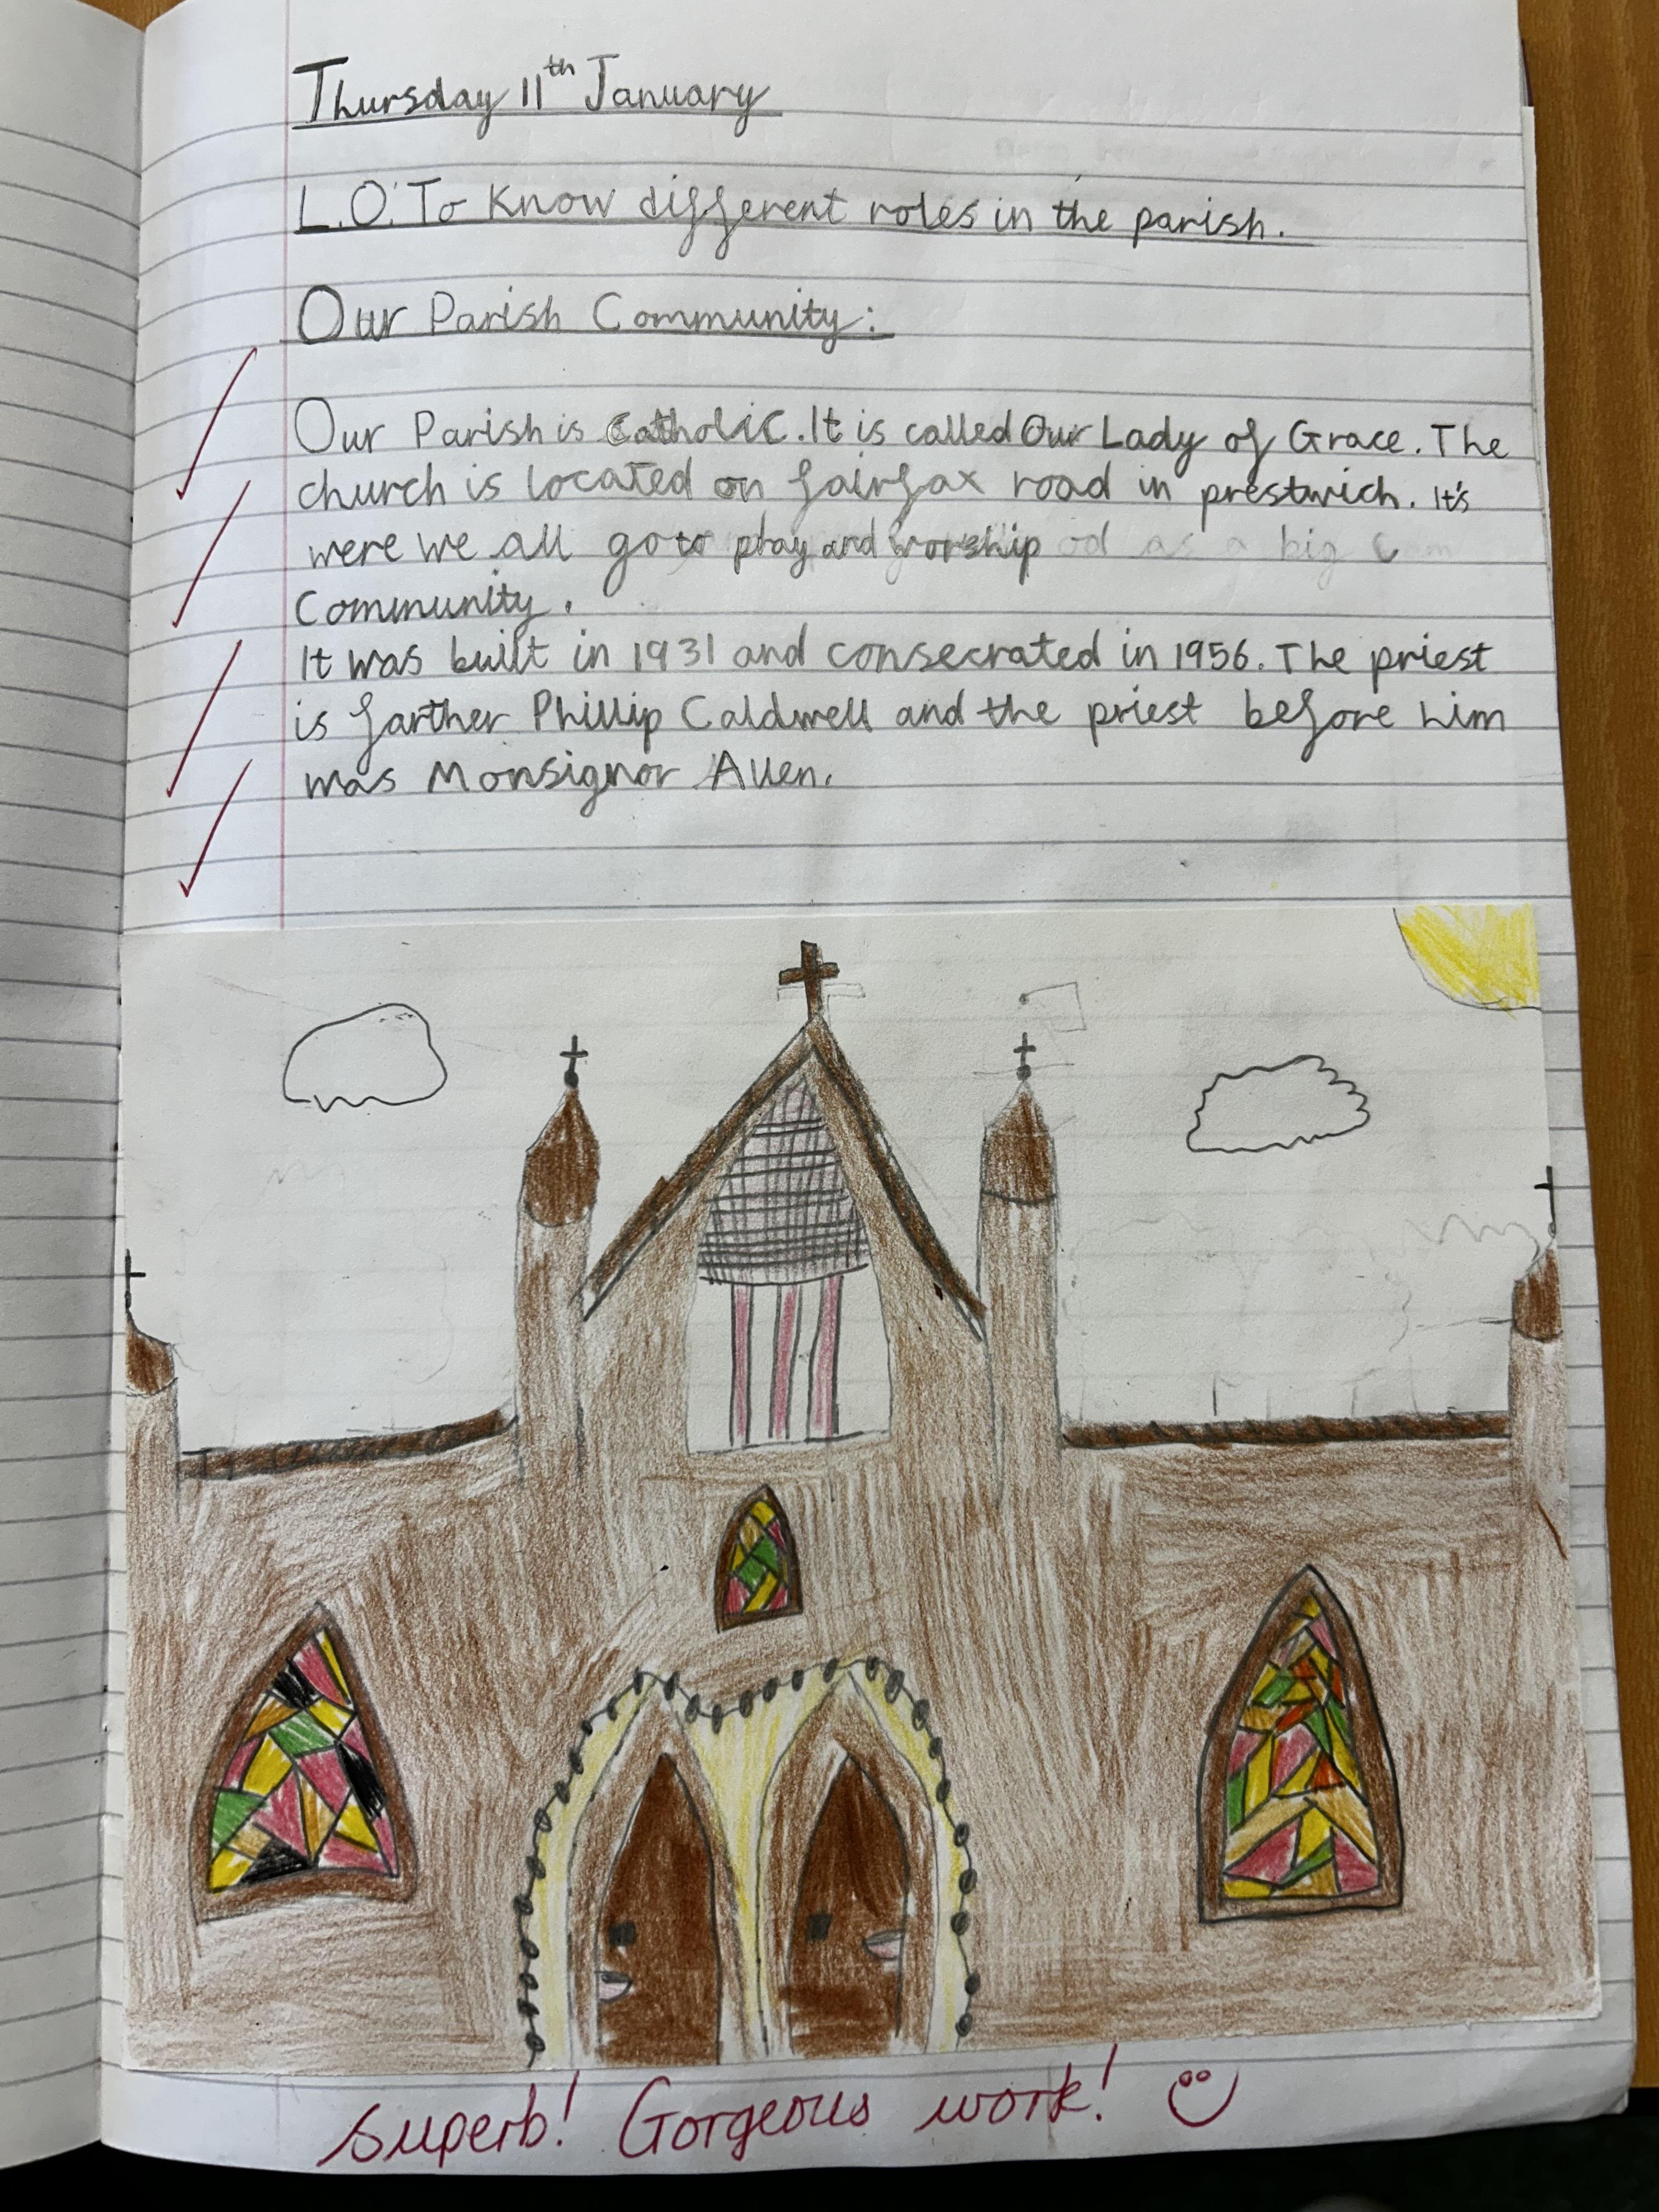 Thursday 11th January
L.O: To Know different roles in the parish.
Our Parish Community:
Our Parish is Catholic. It is called Our Lady of Grace. The
church is located on fairfax road in prestwich. It's
were we all go to pray and worship od as a big
Community.
It was built in 1931 and consecrated in 1956. The priest
is farther Phillip Caldwell and the priest before him
was Monsignor Allen.
Superb! Gorgeous work!